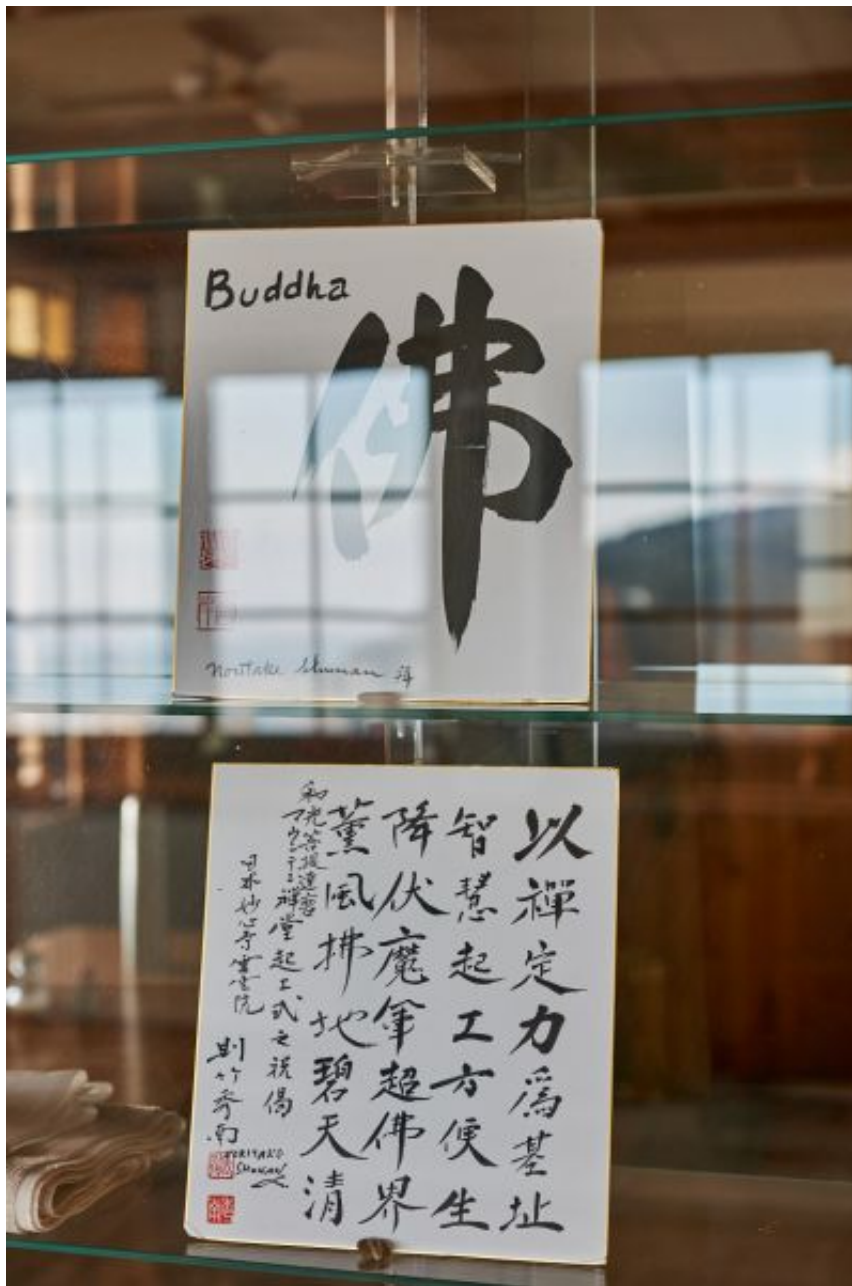 Buddha
佛
Noritake Shunan
以禪定力爲基址
智慧起工方便生
降伏魔軍超佛界
薫風拂地碧天清
禅堂起工式之祝偈
日本妙心寺霊雲院
則竹秀南
NORITAKE
SHUNAN